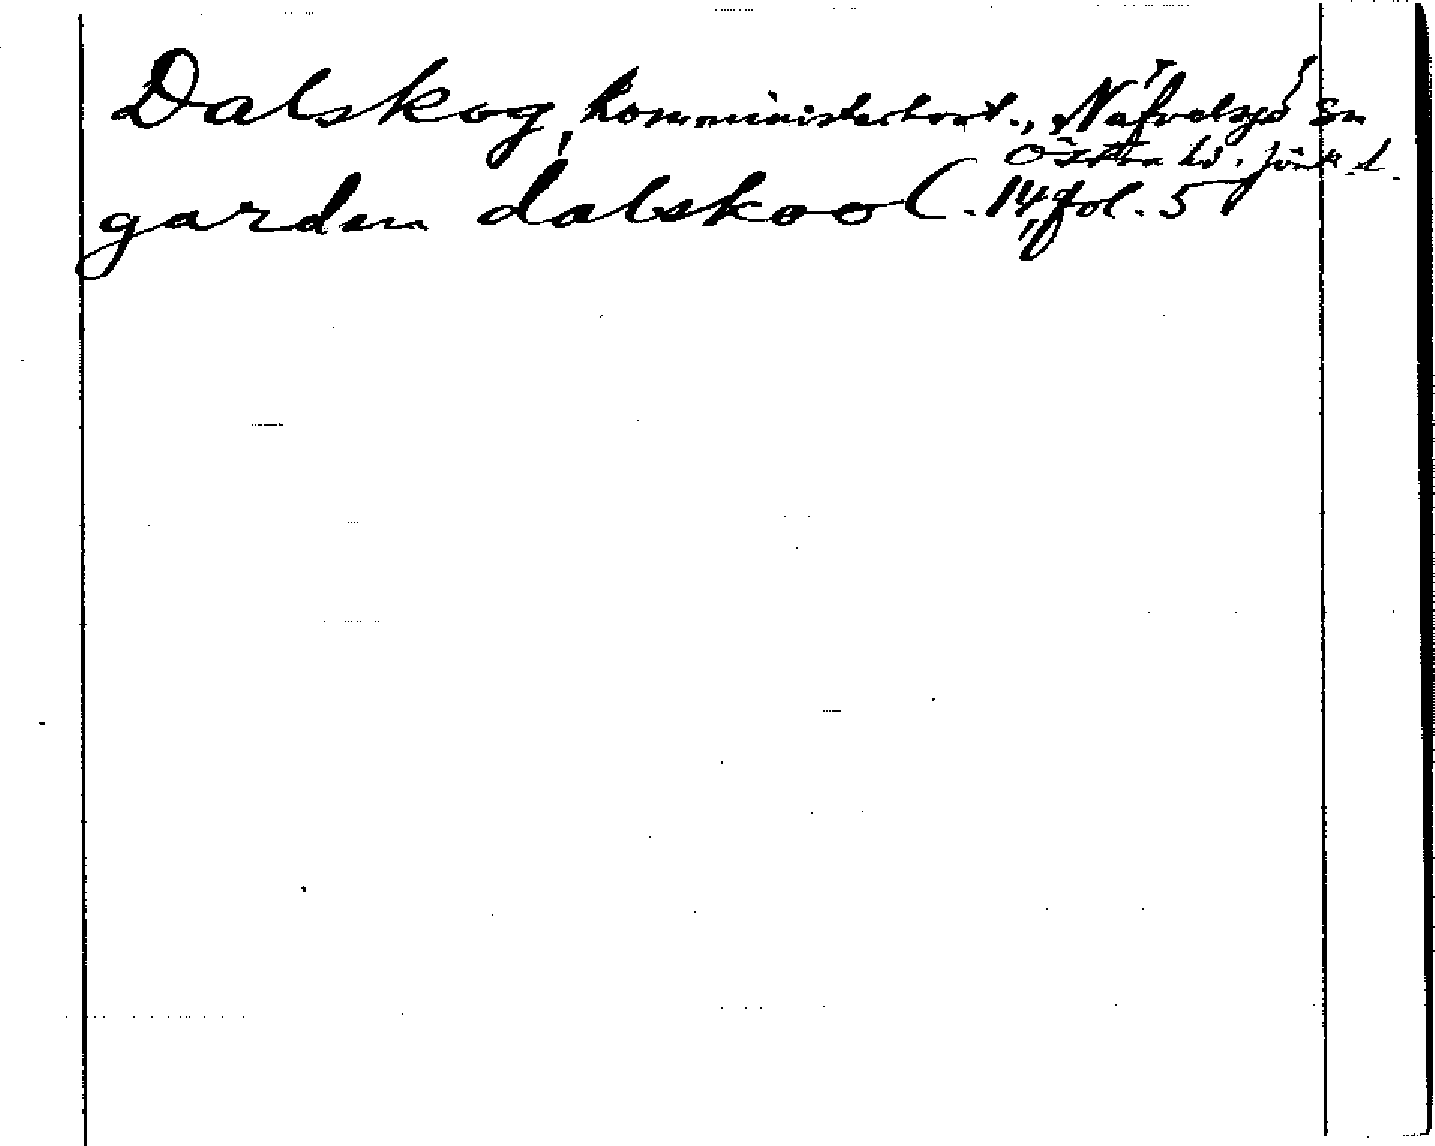 Dalskog, komministerbost., Näfvelsjö Sn
Östra hd. Jönk. l.
garden dalskoo C. 14, fol. 5